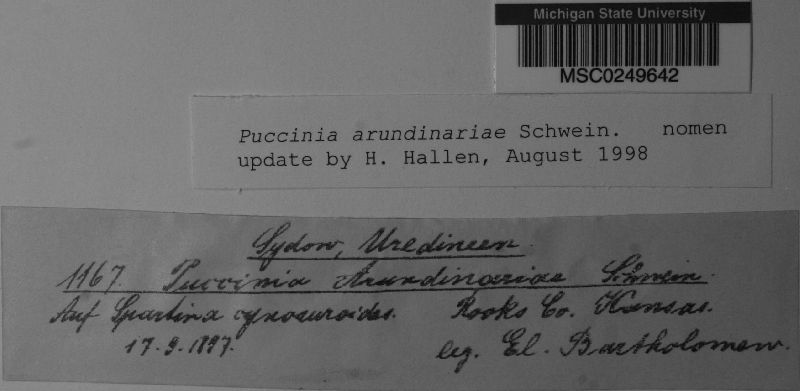 Michigan State University
MSC0249642
Puccinia arundinariae Schwein. nomen
update by H. Hallen, August 1998
Sydow, Uredineen.
1167. Puccinia Arundinariae Schwein.
Auf Spartina cynosuroides. Rooks Co. Kansas.
17.9.1897. leg. El. Bartholomew.